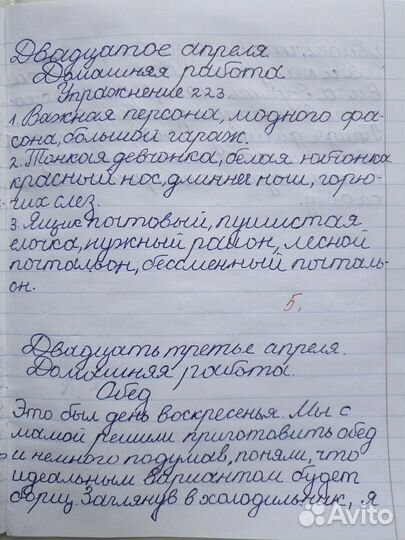 Двадцатое апреля
Домашняя работа
Упражнение 223.
1. Важная персона, модного фа-
сона, большой гараж.
2. Тонкая девчонка, белая
красный нос, длинней нош, горю-
чих слез.
3. Ящик почтовый, пушистая
елочка, нужный район, лесной
почтальон, бессменный почталь-
он.
5.
Двадцать третье апреля.
Домашняя работа.
Обед
Это был день воскресенья. Мы с
мамой решили приготовить обед
и немного подумав, поняли, что
идеальным вариантом будет
борщ. Заглянув в холодильник, я
Avito